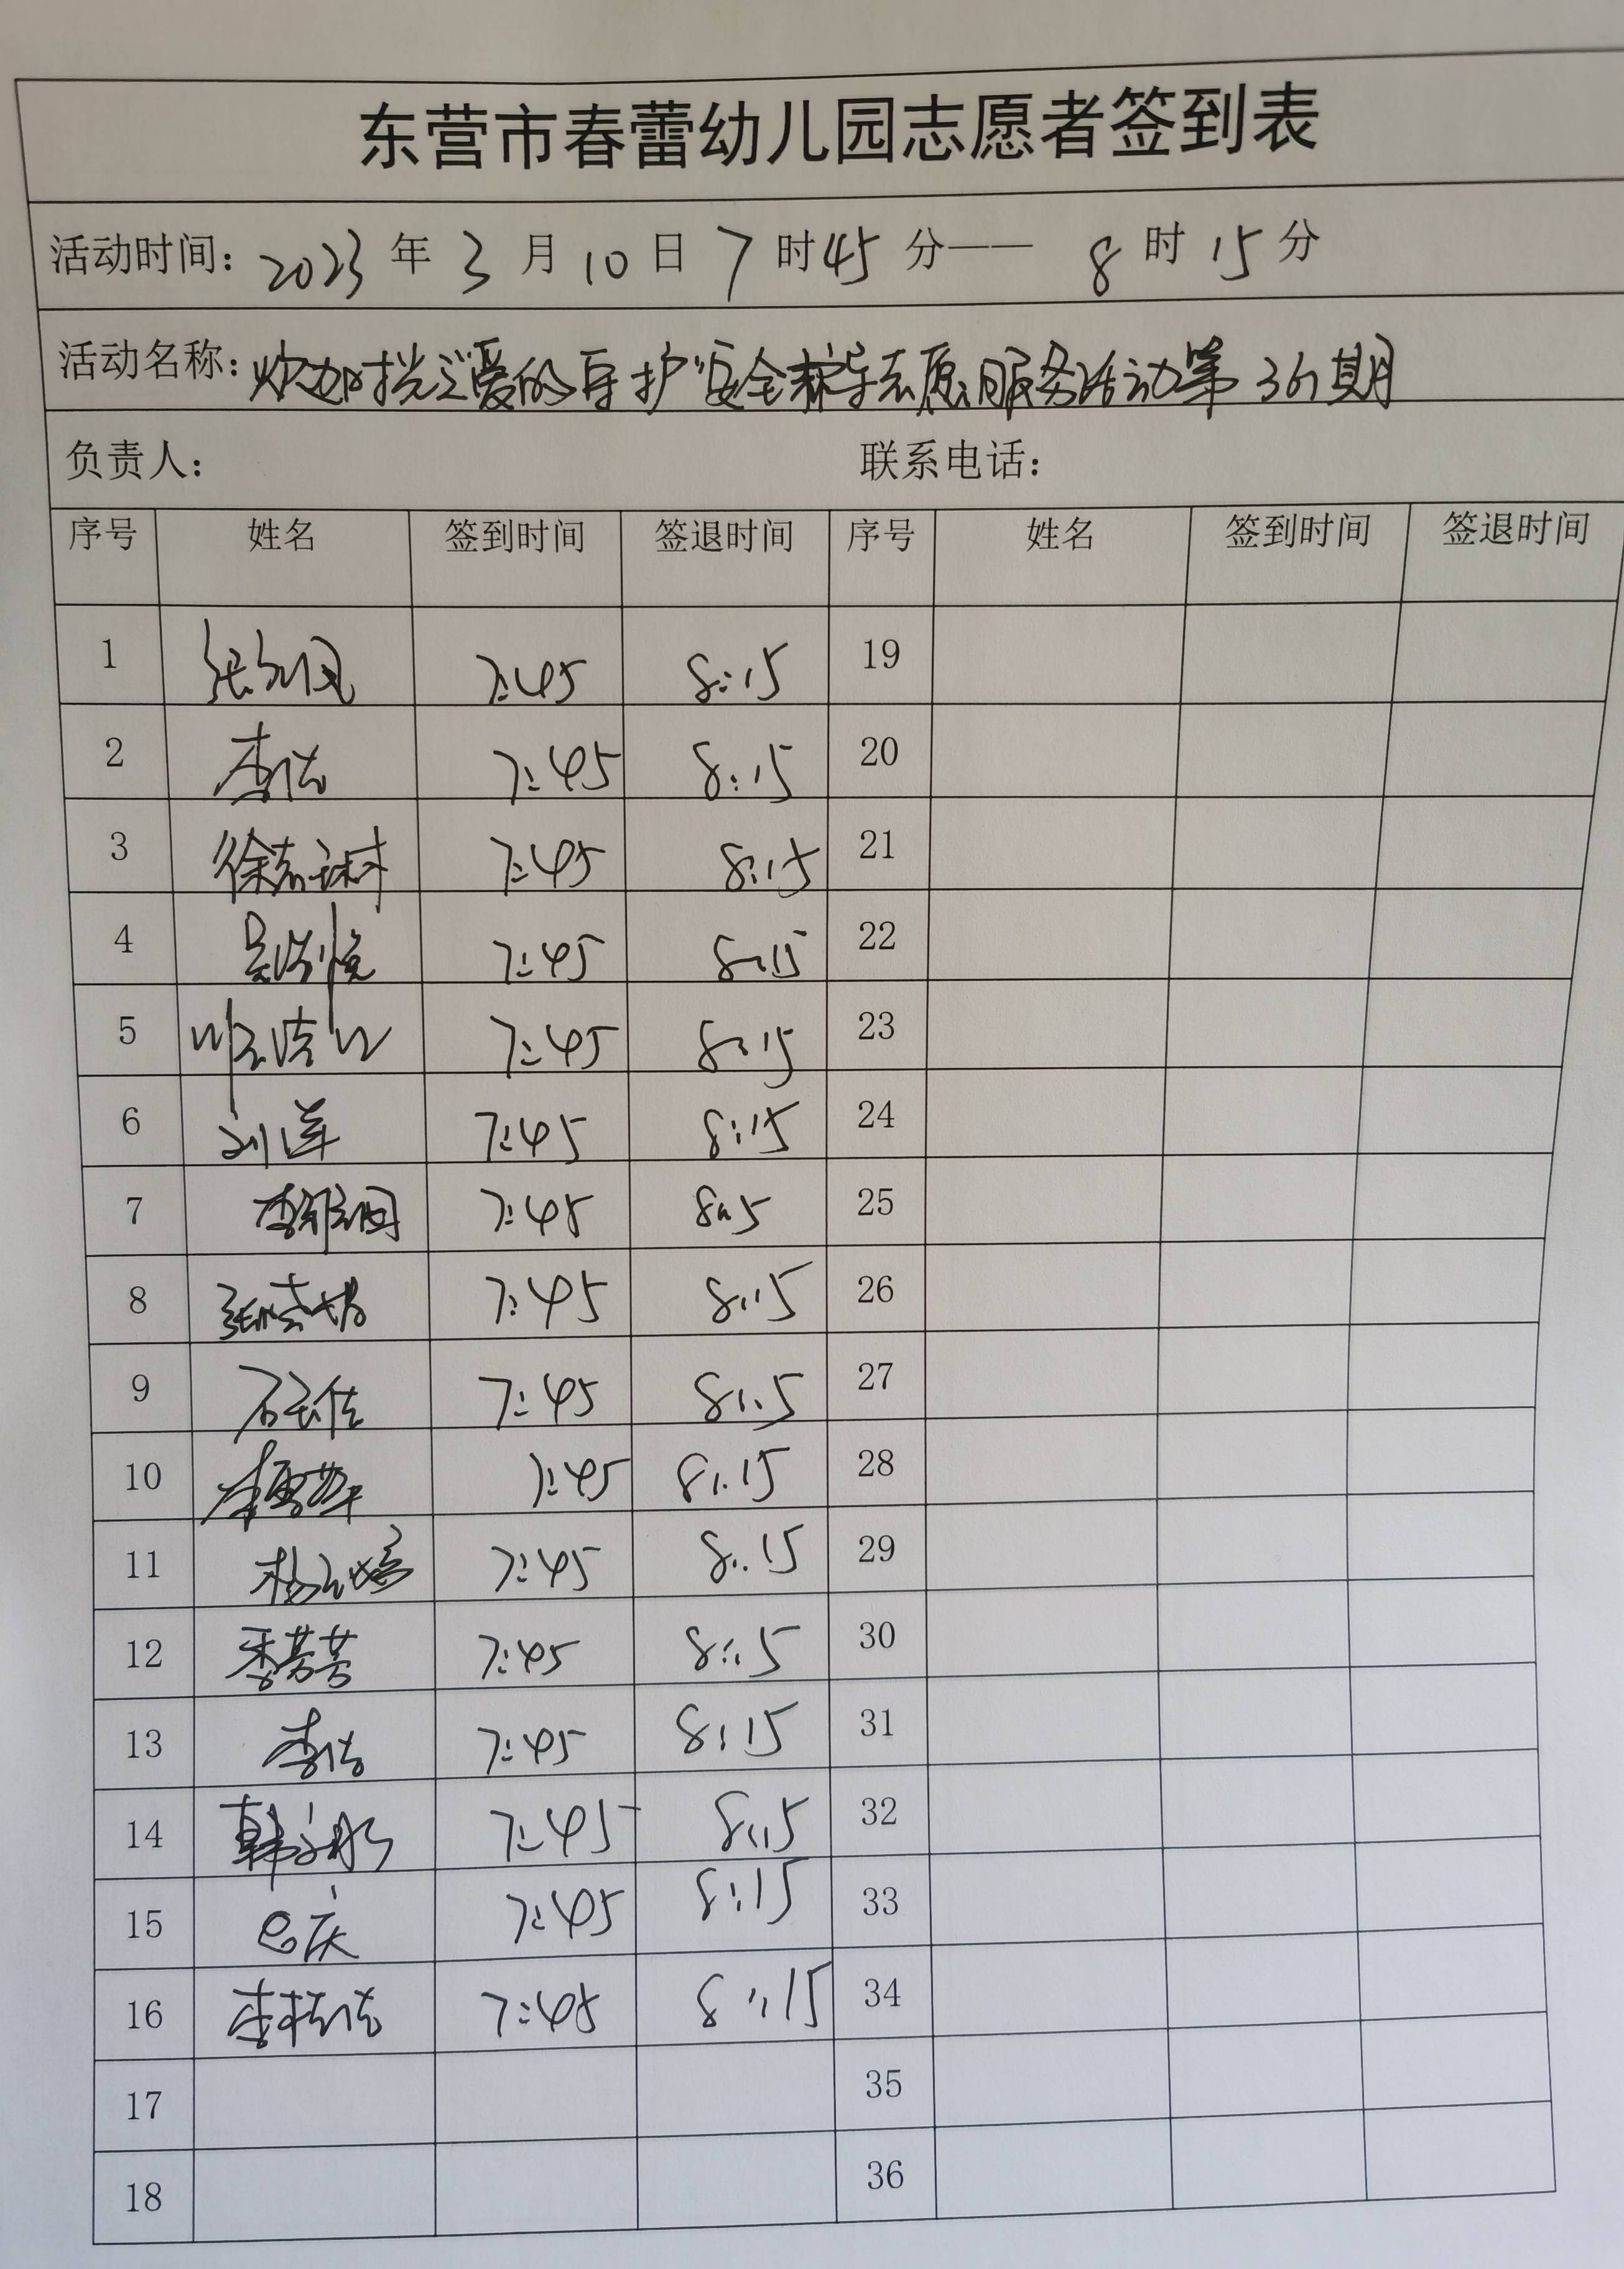 东营市春蕾幼儿园志愿者签到表
活动时间: 2023 年 3 月 10 日 7 时 45 分—— 8 时 15 分
活动名称: 时光 爱的守护"安全 志愿服务活动第361期
负责人: 联系电话:
序号 姓名 签到时间 签退时间 序号 姓名 签到时间 签退时间
1 7:45 8:15 19
2 李洁 7:45 8:15 20
3 徐志琳 7:45 8:15 21
4 吴悦 7:45 8:15 22
5 7:45 8:15 23
6 刘洋 7:45 8:15 24
7 7:45 8:15 25
8 7:45 8:15 26
9 石玉佳 7:45 8:15 27
10 7:45 8:15 28
11 7:45 8:15 29
12 季芳芳 7:45 8:15 30
13 李洁 7:45 8:15 31
14 7:45 8:15 32
15 巴庆 7:45 8:15 33
16 7:45 8:15 34
17 35
18 36